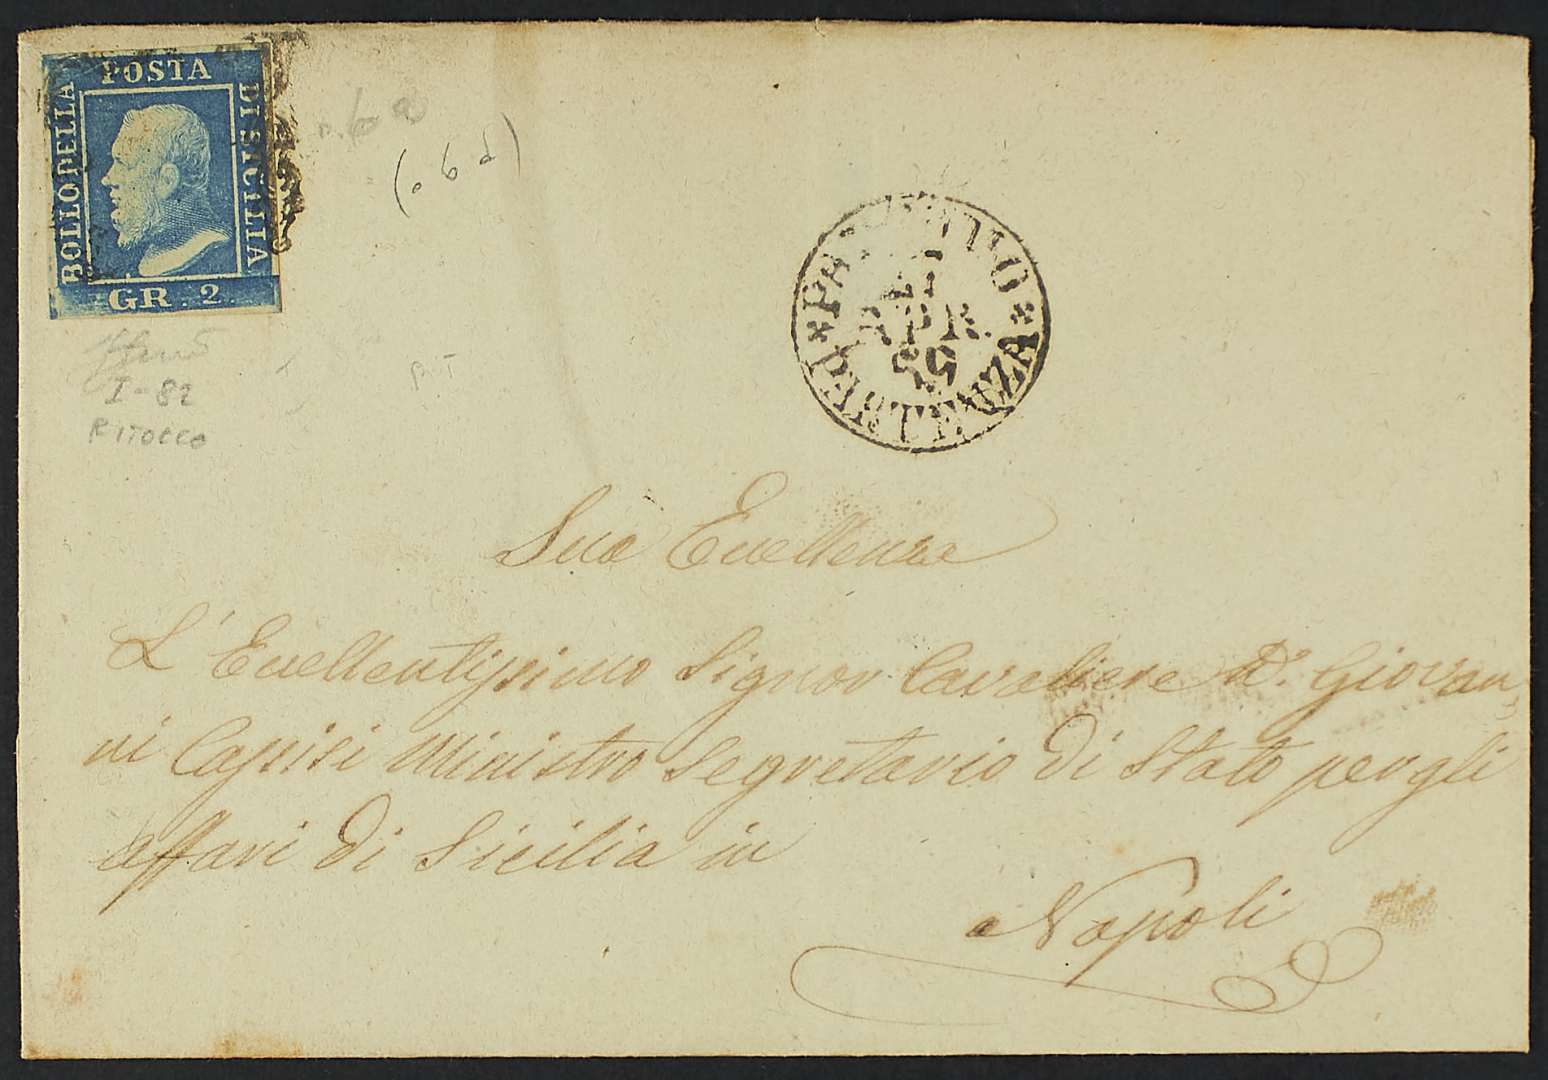 POSTA
BOLLO DELLA
DI SICILIA
GR. 2.
n. 6 a
(. 6 d)
I-82
RITOCCO
APR
59
PARTENZA
Sua Eccellenza
L'Eccellentissimo Signor Cavaliere D. Giovan
ni Cassisi Ministro Segretario di Stato per gli
affari di Sicilia in
Napoli